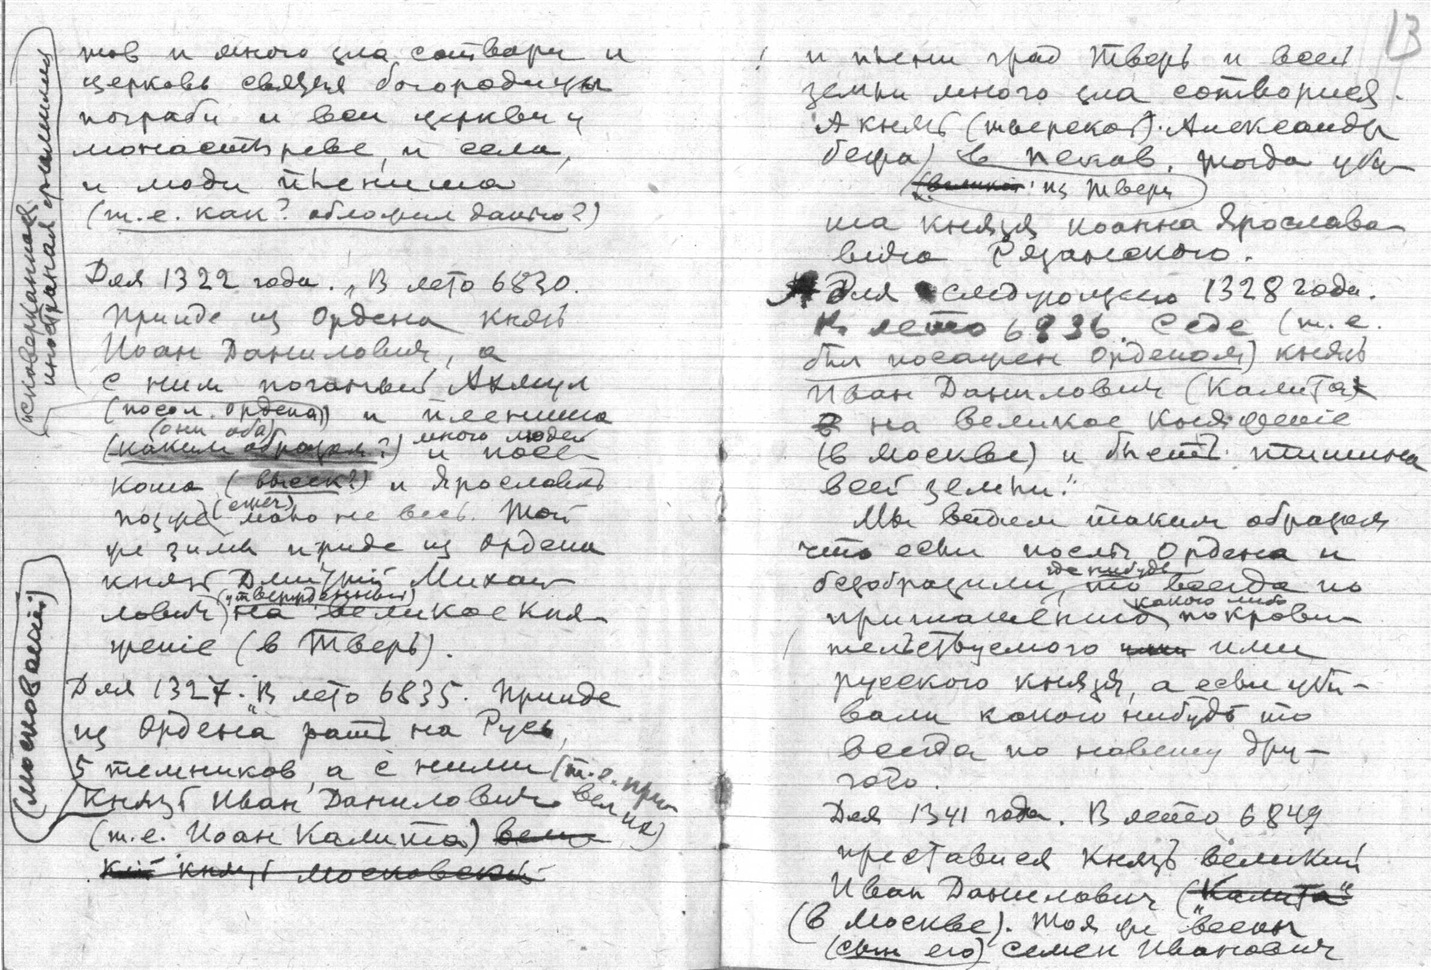 тов и много зла сотвори и
церковь святыя богородицы
пограби и все церкви и
монастыреве, и села,
и люди плениша
(т.е. как? обложил данью?)
Для 1322 года. „В лето 6830.
Прииде из Ордена князь
Иоан Данилович, а
с ним поганый Ахмул
(посол Ордена) и плениша
(они оба)
(каким образом?) много людей и посе-
коша (высек?) и Ярославль
пожже (сжег) мало не весь. Той
же зимы прииде из Ордена
князь Дмитрий Михаи-
лович („утвержденный) на великое кня-
жение (в Тверь).
Для 1327. „В лето 6835. Прииде
из Ордена рать на Русь,
5 темников, а с ними (т.е. при-
вел их)
князь Иван Данилович
(т.е. Иоан Калита) вели-
кий князь московский
исковерканная
иностранная фамилия
(московский)
13
и плени град Тверь и всей
земли много зла сотворися.
А князь (тверской) Александр
бежа в Псков. Тогда уби-
(великой из Твери
ша князя Иоанна Ярослава-
вича Рязанского.
Для следующего 1328 года.
В лето 6836. Седе (т.е.
был посажен Орденом) князь
Иван Данилович (Калита)
на великое княжение
(в Москве) и бысть тишина
всей земли."
Мы видим таким образом
что если послы Ордена и
безобразили где нибудь, то всегда по
приглашению какого либо покрови-
тельствуемого ими
русского князя, а если уби-
вали какого нибудь то
всегда по навету дру-
гого.
Для 1341 года. В лето 6849
преставися князь великий
Иван Данилович („Калита"
(в Москве). Тоя же весны
(сын его) Семен Иванович